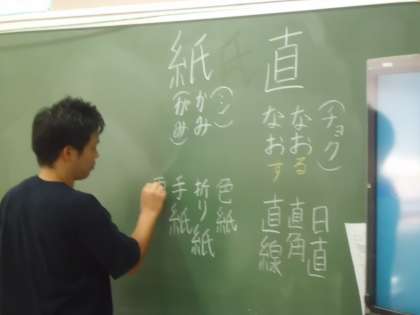 直
(チョク)
なおる
なおす
日直
直角
直線
紙
(シ)
かみ
(がみ)
色紙
折り紙
手紙